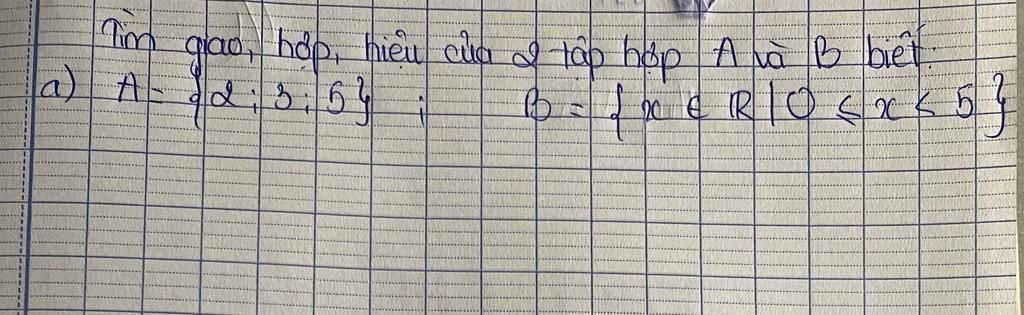 Tìm giao, hợp, hiệu của 2 tập hợp A và B biết:
a) A = {2; 3; 5} ; B = {x ∈ R | 0 ≤ x < 5}